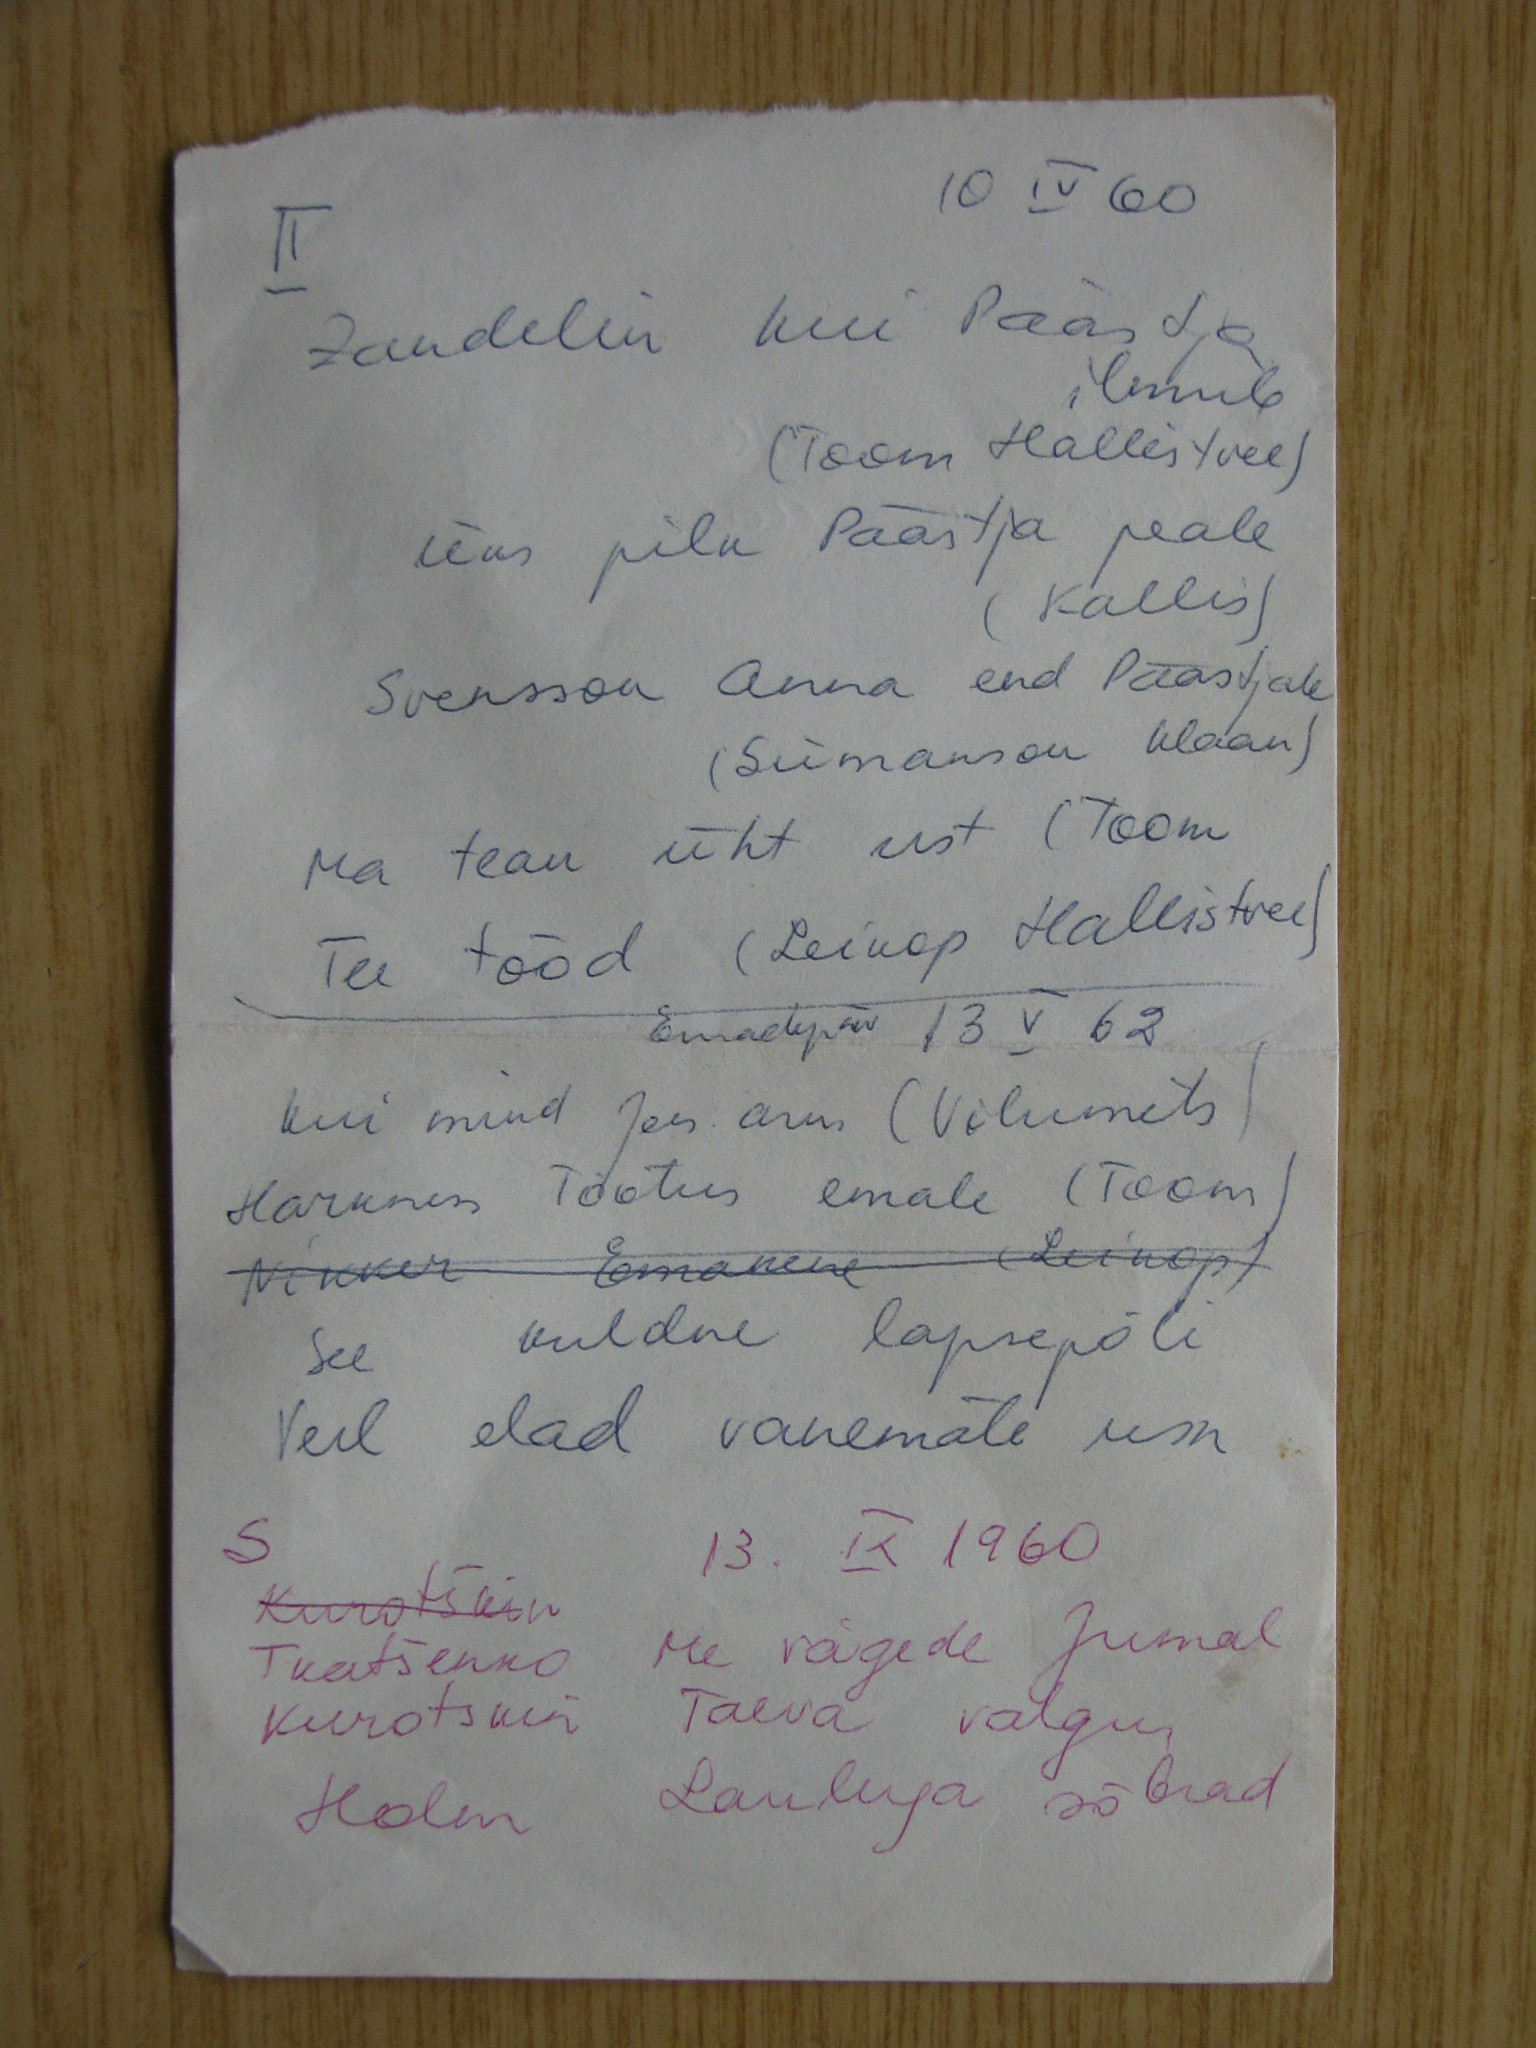 10 IV 60
II
Zandelin kui Päästja
ilmub
(Toom Hallistvee)
Üks pilk Päästja peale
(Kallis)
Svensson Anna end Päästjale
(Siimanson klaan)
Ma tean üht ust (Toom
Tee tööd (Leikop Hallistvee)
Emadepäev 13 V 62
kui mind Jes. arm (Vilumets)
Harkness Tootus emale (Toom)
Nikker Emakene (Leikop)
See kuldne lapsepõli
Veel elad vanemate usk
S 13. IX 1960
Kurotškin
Tkatšenko Me vägede Jumal
Kurotskin Taeva valgus
Holm Lauluga sõbrad